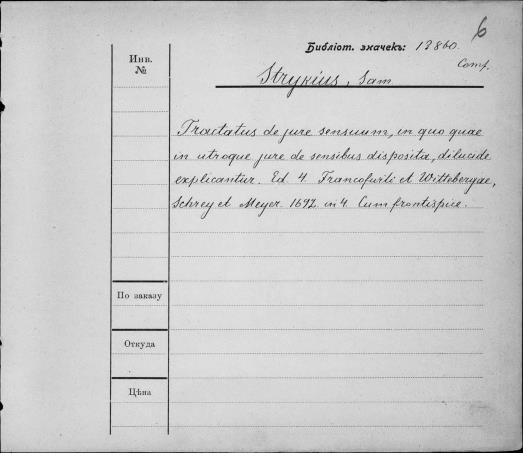 6
Библіот. значекъ: 12860.
Comp.
Инв.
№
Strykius, Sam
Tractatus de jure sensuum, in quo quae
in utroque jure de sensibus disposita, dilucide
explicantur. Ed 4. Francofurti et Wittebergae,
Schrey et Meyer. 1692. in 4. Cum frontispice.
По заказу
Откуда
Цѣна